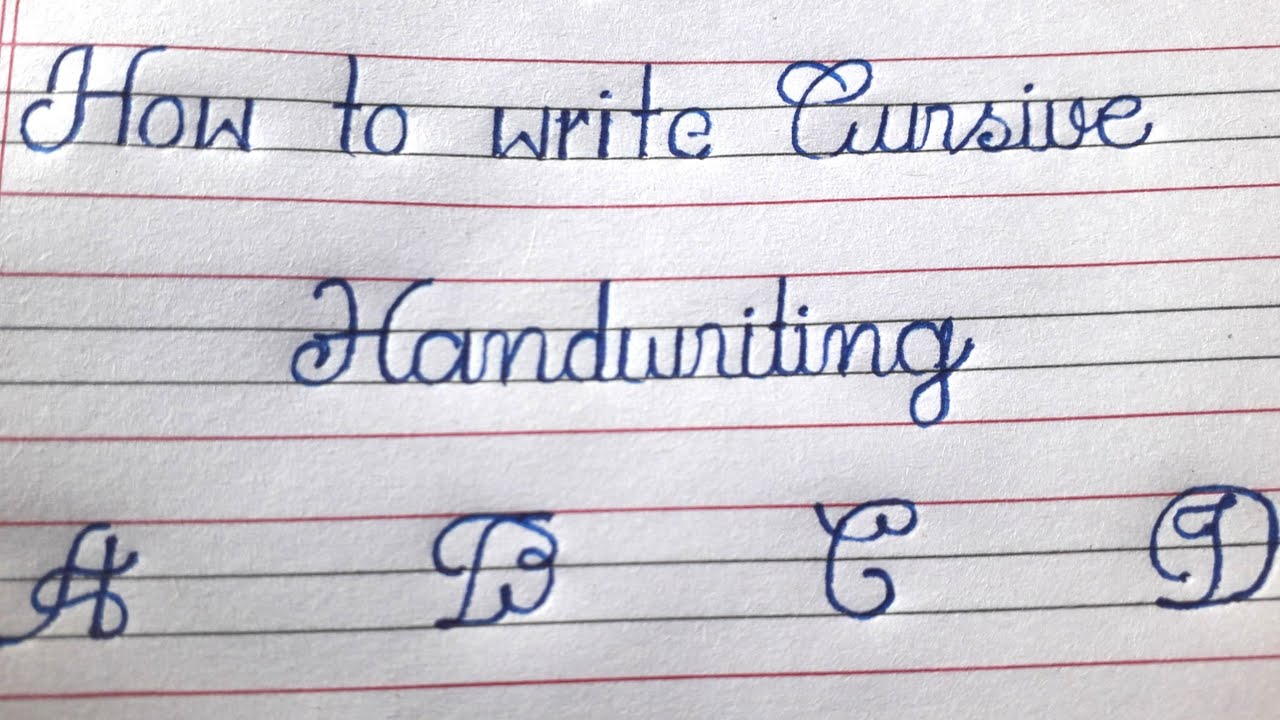 How to write Cursive
Handwriting
A B C D